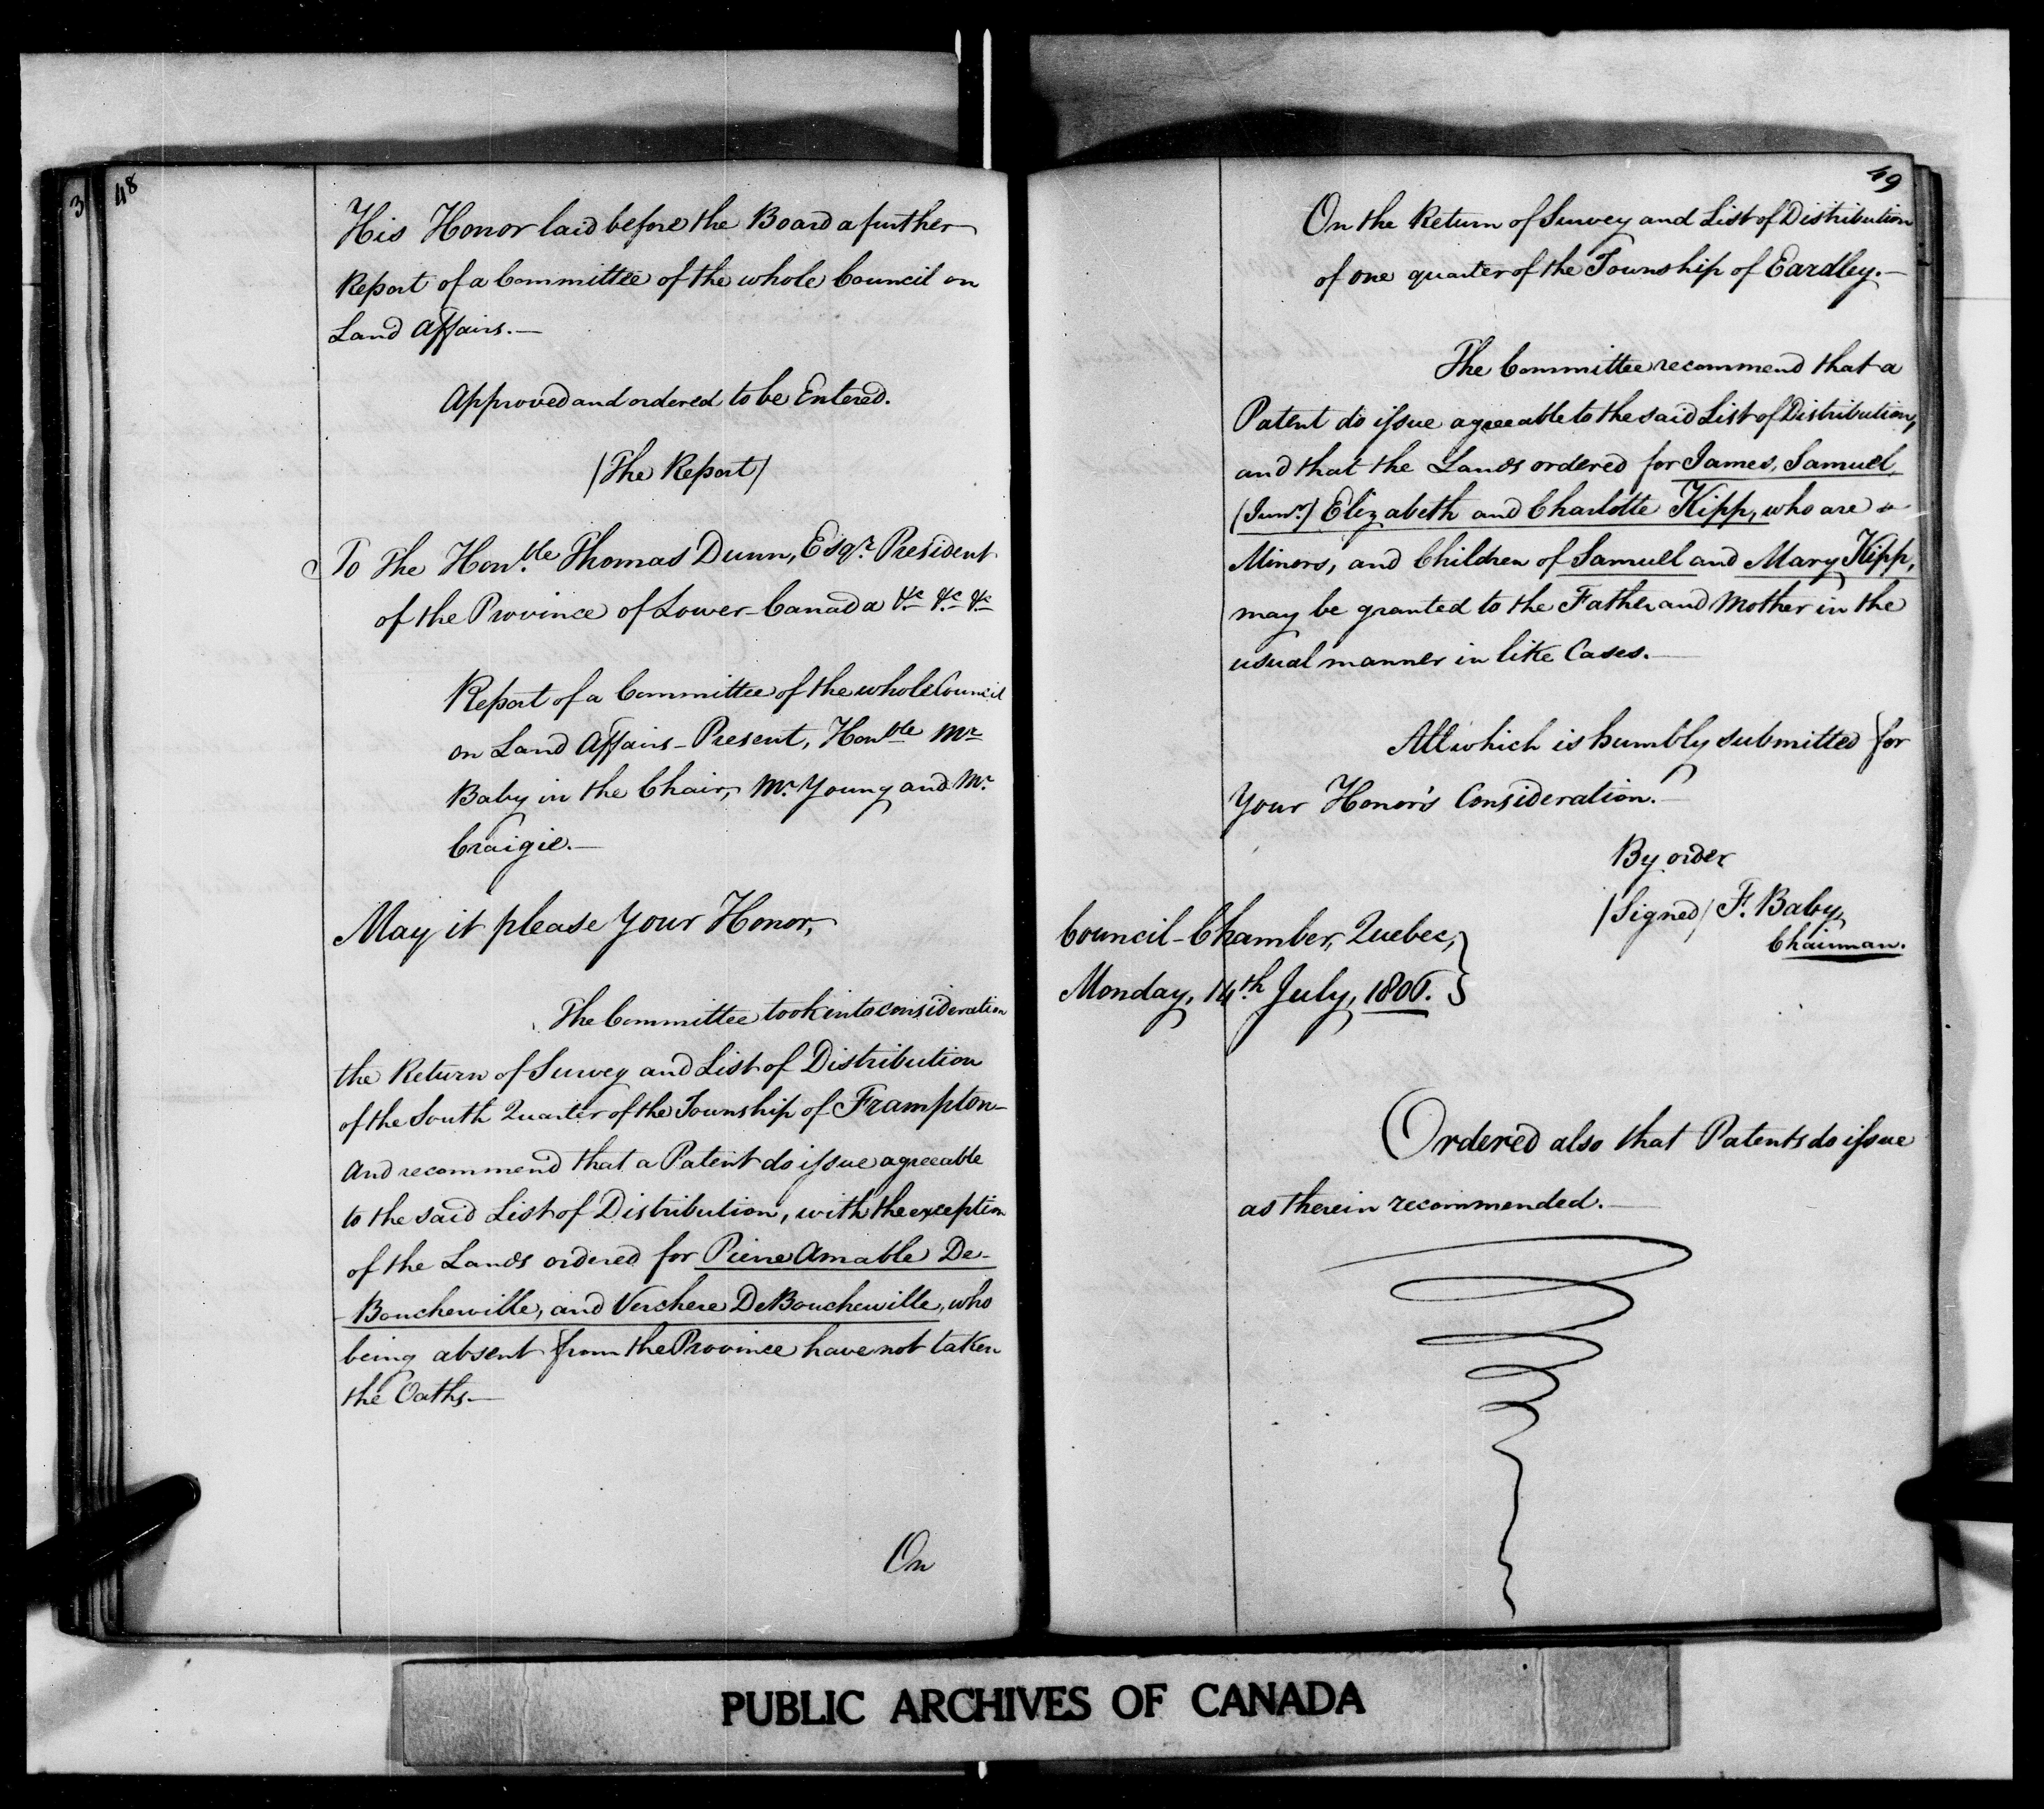 3
48
His Honor laid before the Board a further
Report of a Committee of the whole Council on
Land Affairs.—
Approved and ordered to be Entered.
/The Report/
To The Hon.ble Thomas Dunn, Esqr. President
of the Province of Lower-Canada &c &c &c
Report of a Committee of the whole Council
on Land Affairs – Present, Honble Mr
Baby in the Chair, Mr. Young and Mr.
Craigie.—
May it please Your Honor,
The Committee took into consideration
the Return of Survey and List of Distribution
of the South Quarter of the Township of Frampton—
and recommend that a Patent do issue agreeable
to the said List of Distribution, with the exception
of the Lands ordered for Pierre Amable De-
-Boucherville, and Verchere DeBoucherville, who
being absent from the Province have not taken
the Oaths.—
On
49
On the Return of Survey and List of Distribution
of one quarter of the Township of Eardley.—
The Committee recommend that a
Patent do issue agreeable to the said List of Distribution,
and that the Lands ordered for James, Samuel,
(Junr.) Elizabeth and Charlotte Kipp, who are
Minors, and Children of Samuel and Mary Kipp,
may be granted to the Father and Mother in the
usual manner in like Cases.—
All which is humbly submitted for
Your Honor's Consideration.—
By order
/Signed/ F. Baby,
Chairman.
Council-Chamber, Quebec,
Monday, 14th July, 1806.
Ordered also that Patents do issue
as therein recommended.—
PUBLIC ARCHIVES OF CANADA